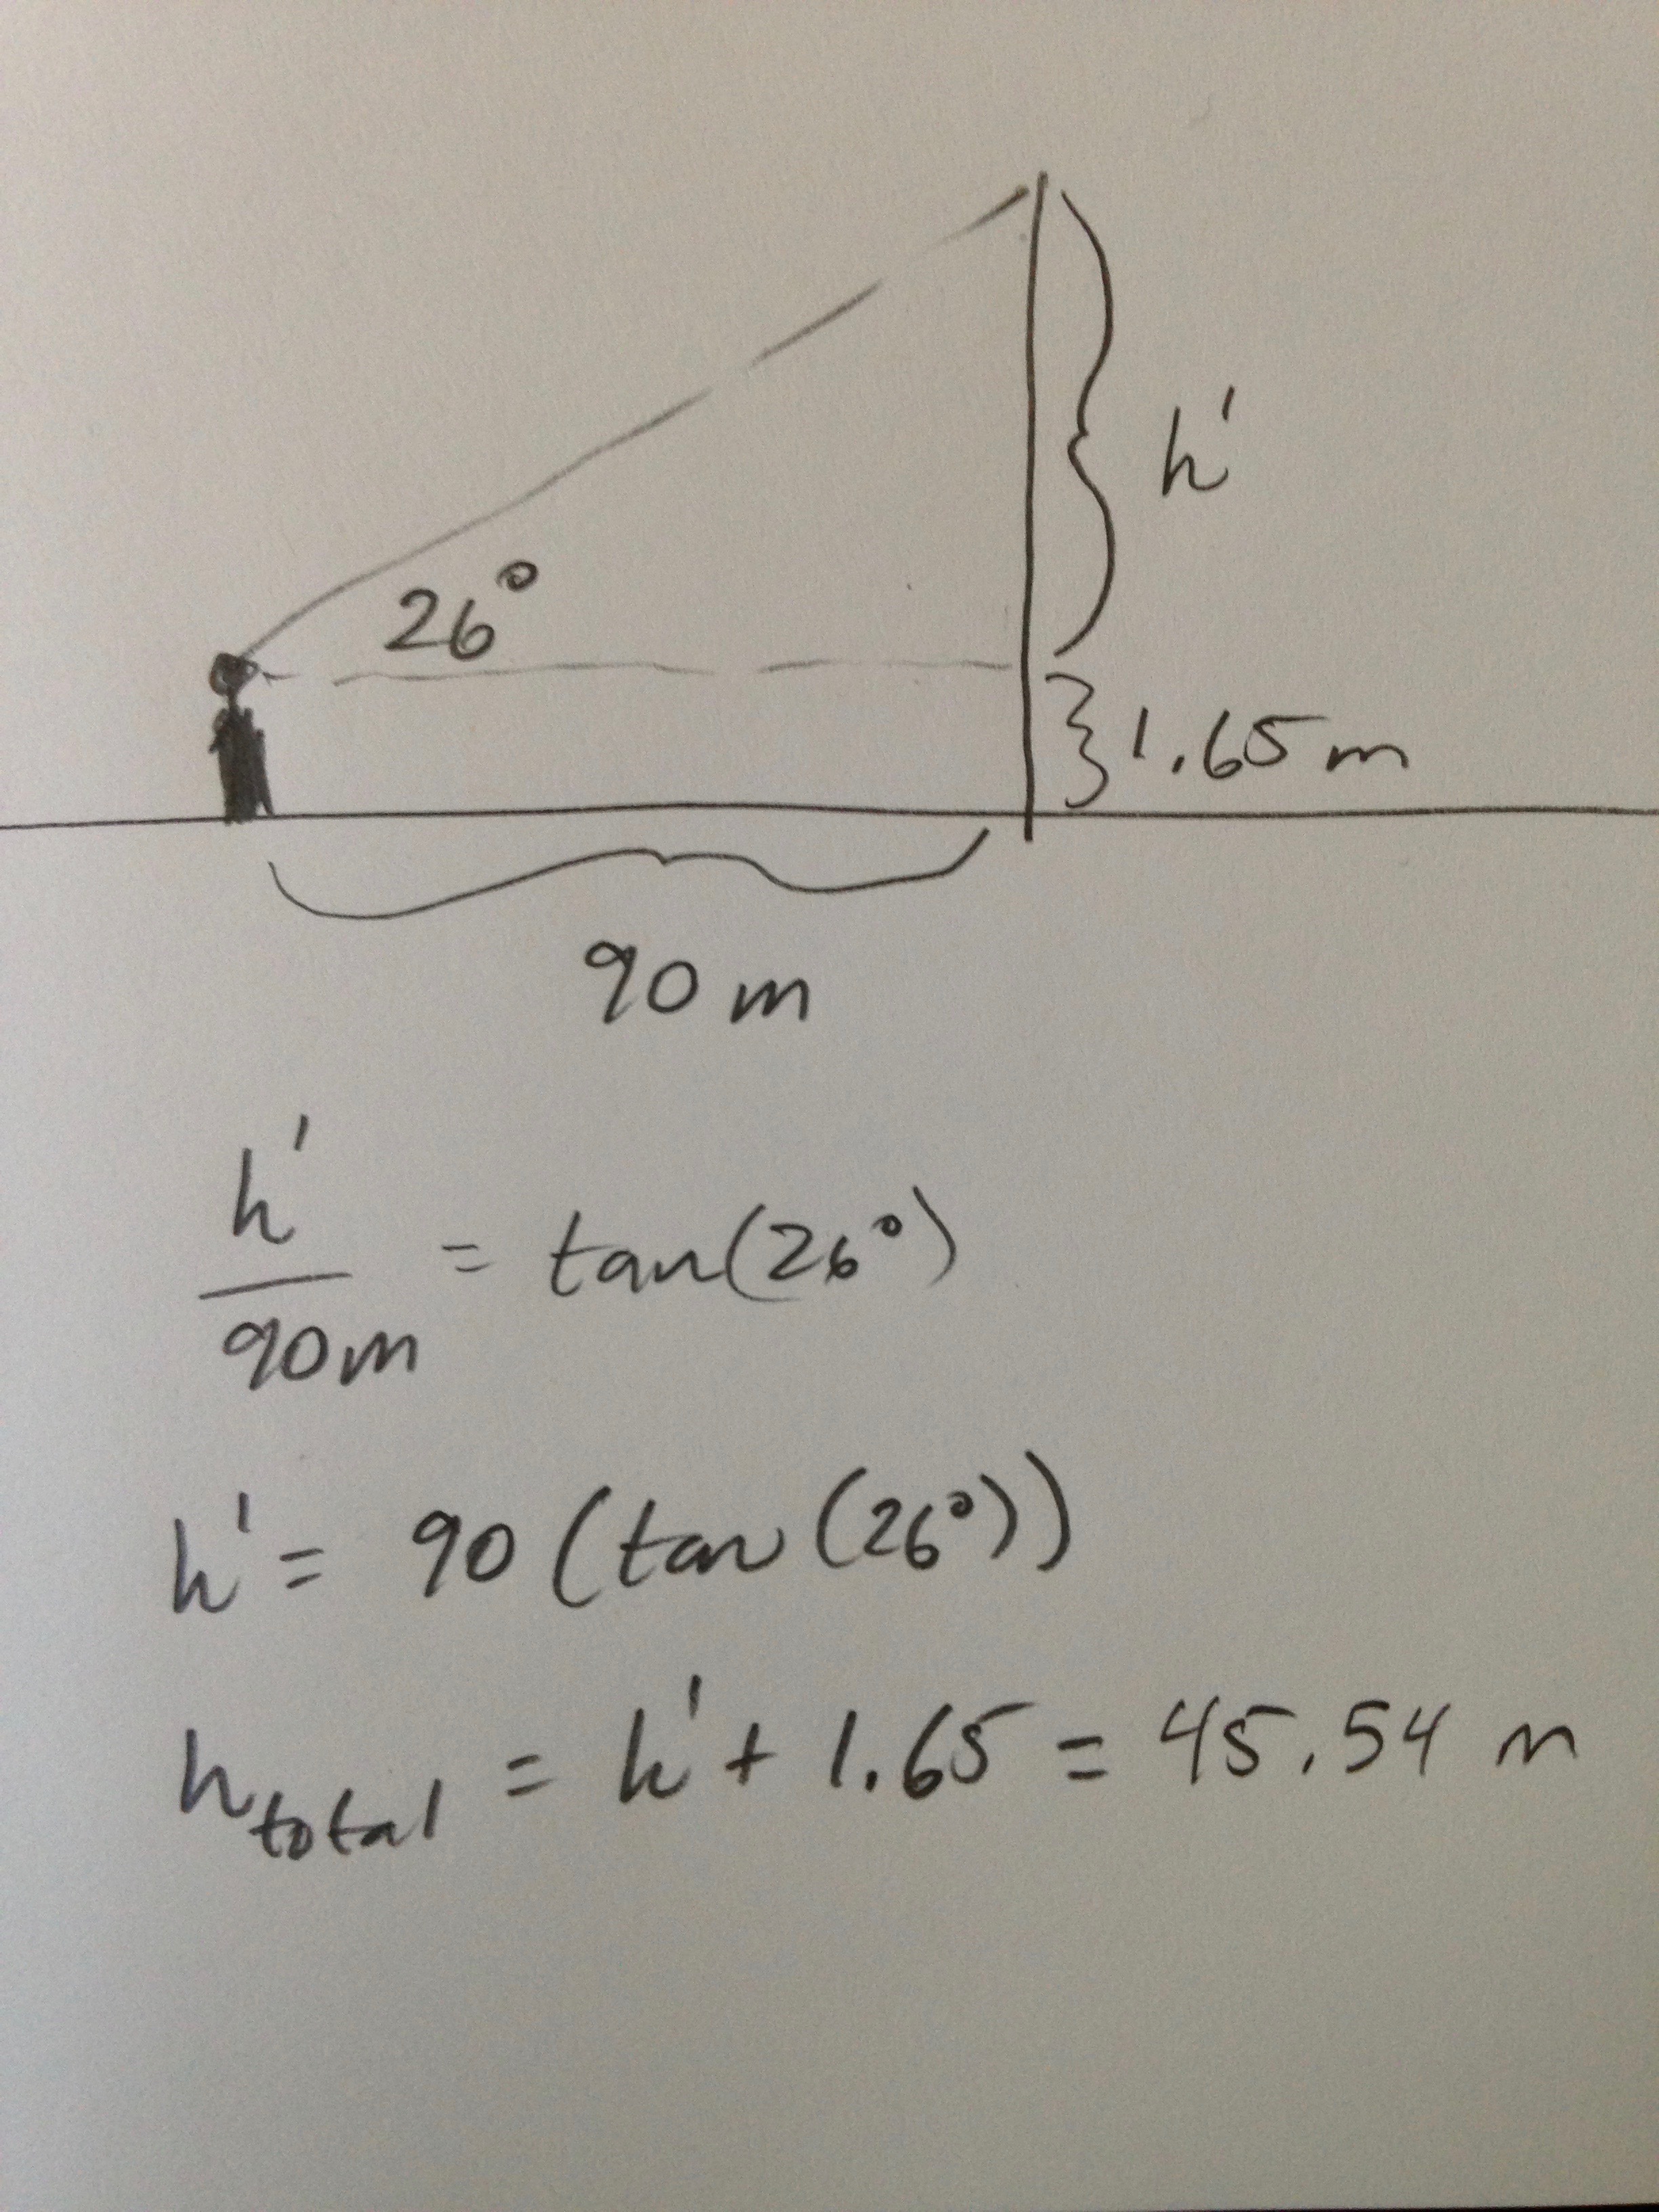 h'
26°
1.65 m
90 m
h'
90m = tan(26°)
h' = 90 (tan (26°))
h total = h' + 1.65 = 45.54 m